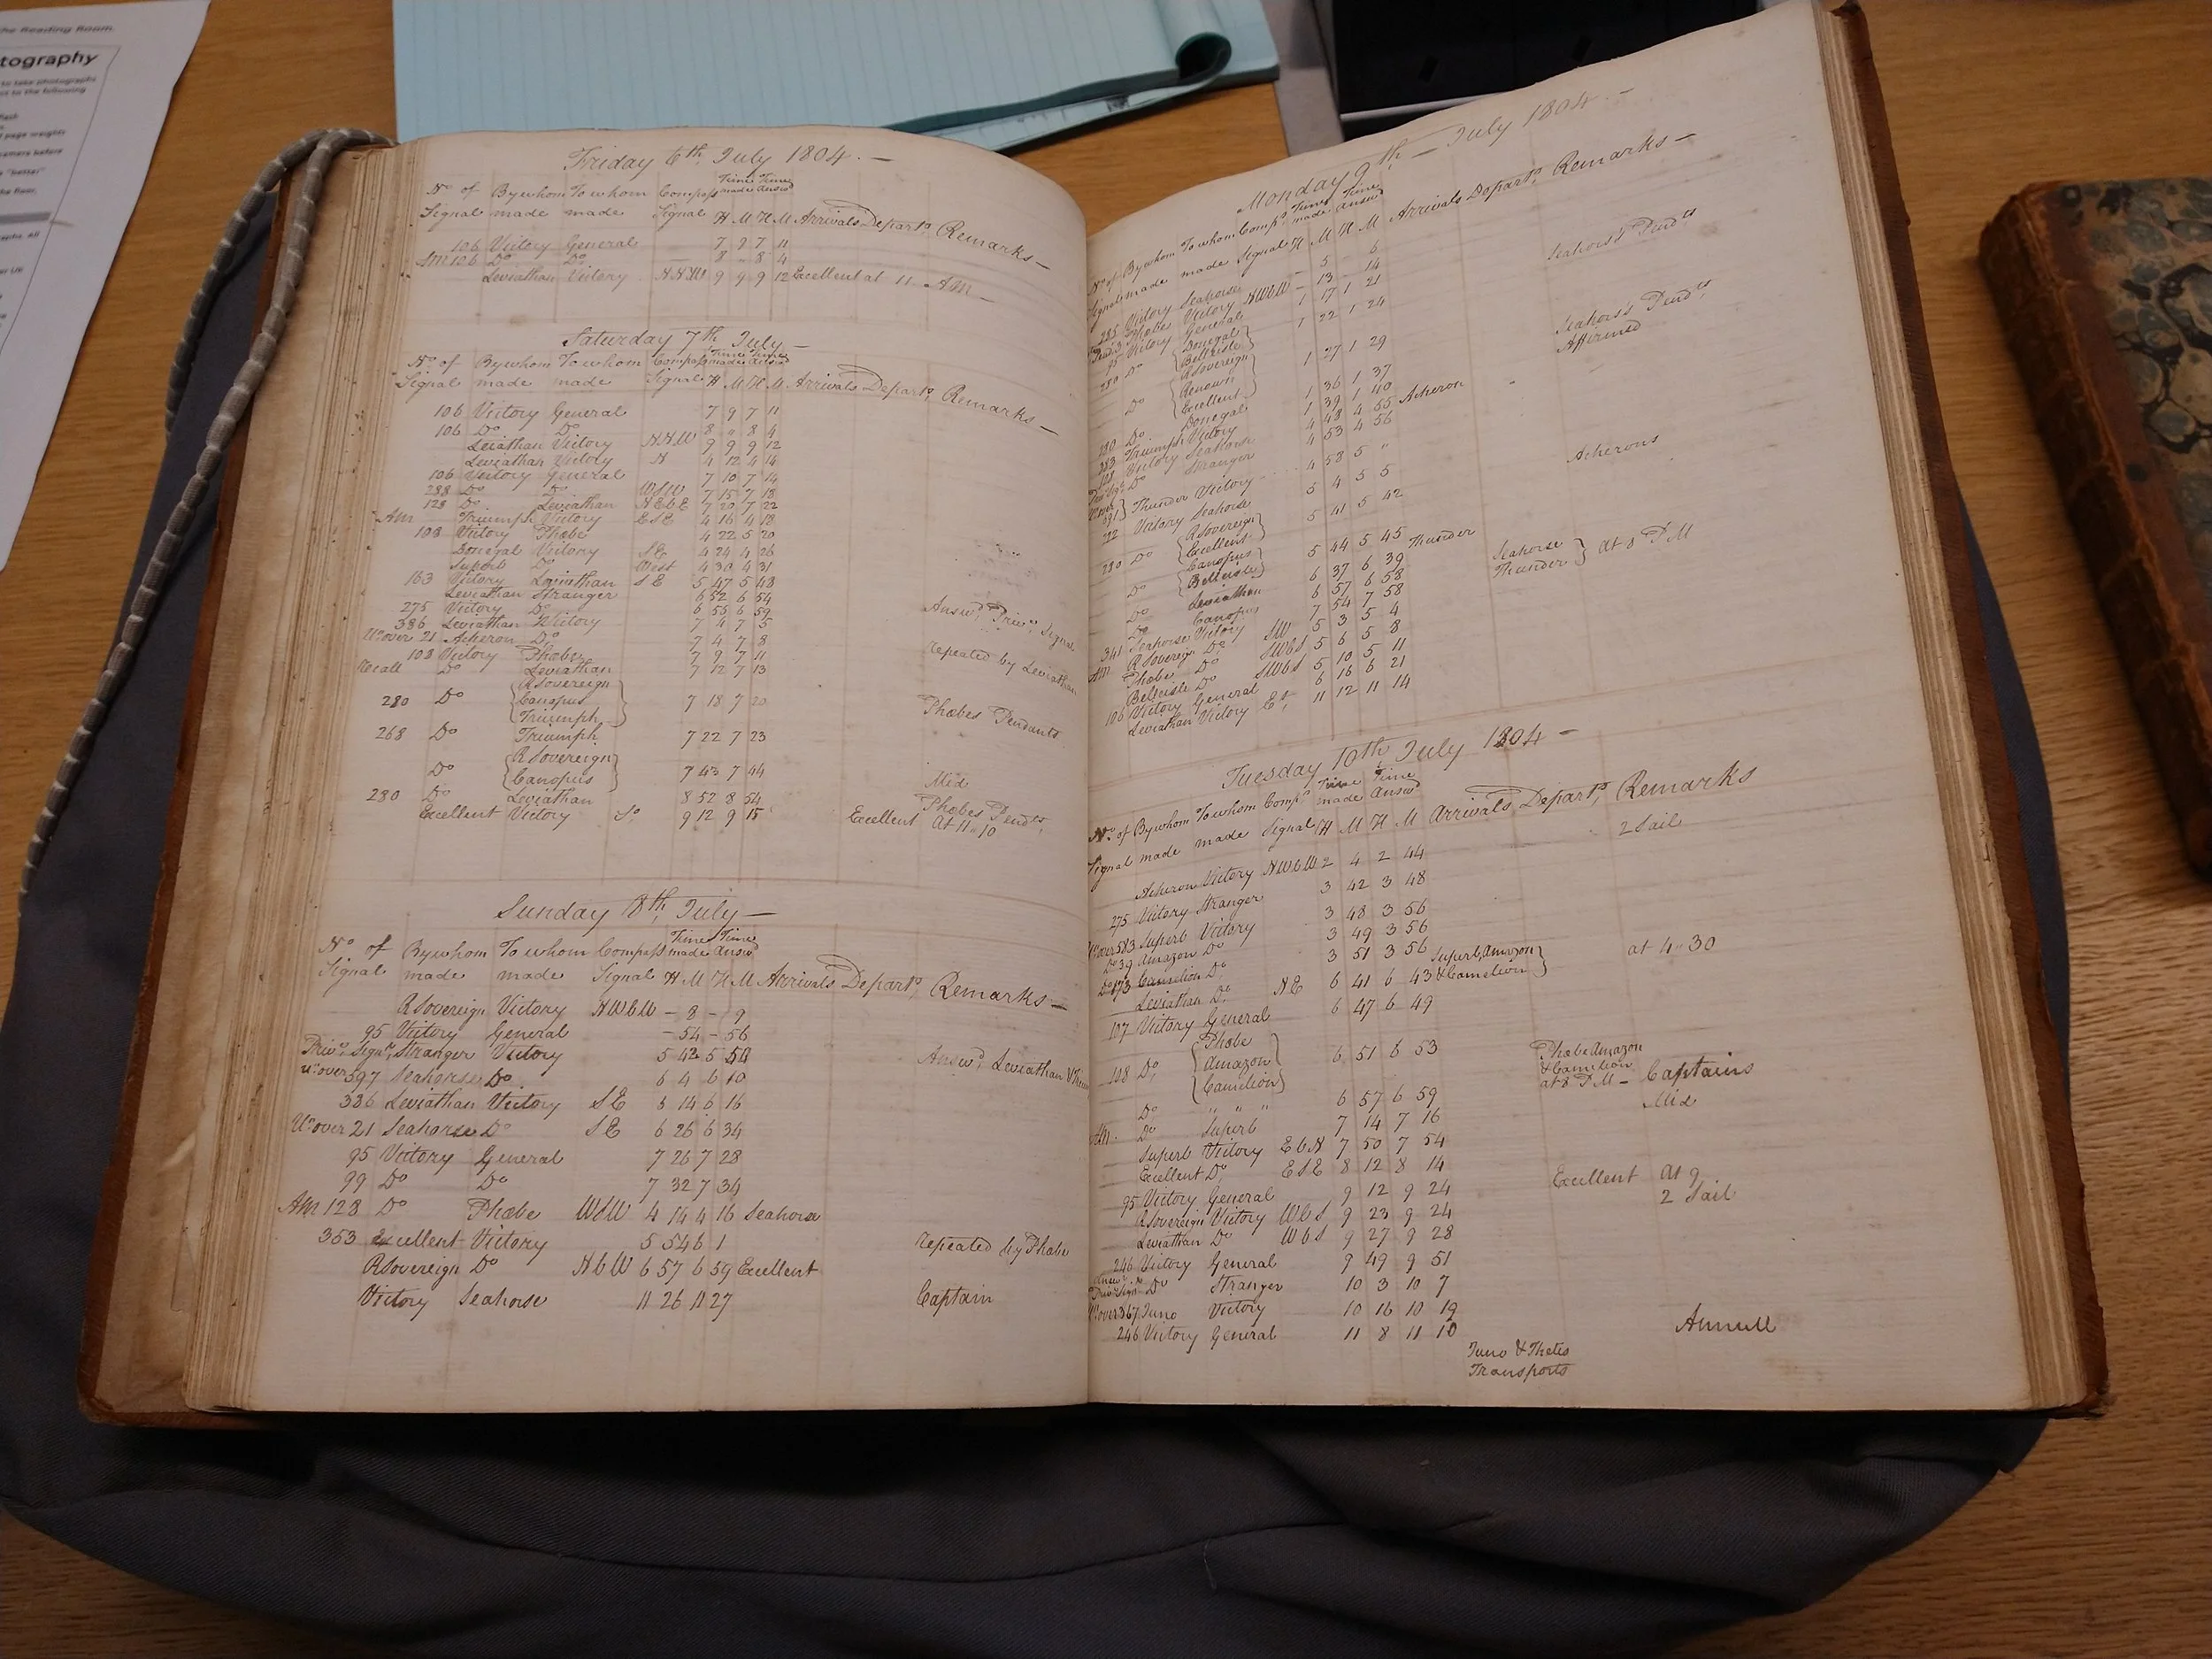 the Reading Room.
tography
to take photographs
ct to the following
flash
page weights
camera before
"better"
the floor.
Friday 6th, July 1804. —
No of By whom To whom Compass Time made Time Answd
Signal made made Signal H M H M Arrivals Depart, Remarks —
106 Victory General 7 9 7 11
Am 106 Do Do — 8 " 8 4
Leviathan Victory N.N.W 9 9 9 12 Excellent at 11 " Am —
Saturday 7th July —
No of By whom To whom Compass Time made Time Answd
Signal made made Signal H M H M Arrivals Depart, Remarks —
106 Victory General 7 9 7 11
106 Do Do 8 " 8 4
Leviathan Victory N.N.W 9 9 9 12
Leviathan Victory N 4 12 4 14
106 Victory General 7 10 7 14
288 Do Do WSW 7 15 7 18
128 Do Leviathan NEbE 7 20 7 22
Am Triumph Victory ESE 4 16 4 18
108 Victory Phœbe 4 22 5 20
Donegal Victory SE 4 24 4 26
Superb Do West 4 30 4 31
163 Victory Leviathan SE 5 47 5 48
Leviathan Stranger 6 52 6 54
275 Victory Do 6 56 6 59 Answd, Privte Signal
386 Leviathan Victory 7 4 7 5
Ur over 21 Acheron Do 7 4 7 8
108 Victory Phœbe 7 9 7 11 repeated by Leviathan
Recall Do Leviathan 7 12 7 13
280 Do { RSovereign Canopus Triumph } 7 18 7 20 Phœbes Pendants
268 Do Triumph 7 22 7 23
Do { RSovereign Canopus } 7 43 7 44
280 Do Leviathan 8 52 8 54 Mid Phœbes Pendts,
Excellent Victory So 9 12 9 15 Excellent At 11 " 10
Sunday 8th, July —
No of By whom To whom Compass Time made Time Answd
Signal made made Signal H M H M Arrivals Depart, Remarks —
RSovereign Victory NWbW — 8 — 9
95 Victory General — 54 — 56
Privte Signl, Stranger Victory 5 42 5 54 Answd, Leviathan
Ur over 597 Seahorse Do 6 4 6 10
386 Leviathan Victory SE 6 14 6 16
Ur over 21 Seahorse Do SE 6 26 6 34
95 Victory General 7 26 7 28
99 Do Do 7 32 7 34
Am 128 Do Phœbe WSW 4 14 4 16 Seahorse
353 Excellent Victory 5 54 6 1 repeated by Phœbe
RSovereign Do NbW 6 57 6 59 Excellent
Victory Seahorse 11 26 11 27 Captain
Monday 9th — July 1804. —
No of By whom To whom Comps Time made Time Answd
Signal made made Signal H M H M Arrivals Depart, Remarks —
285 Victory Seahorse — 5 — 6 Seahors's Pendts
Phœbes Victory NWbW — 13 — 14
95 Victory General 1 17 1 21
280 Do { Donegal Belleisle } 1 22 1 24 Seahors's Pendts,
Do { RSovereign Renown Excellent } 1 27 1 29 Affirmed
280 Do Donegal 1 36 1 37
283 Triumph Victory 1 39 1 40
108 Victory Seahorse 4 48 4 55 Acheron
Do Stranger 4 53 4 56
Thunder Victory 4 58 5 " Acherons
222 Victory Seahorse 5 4 5 5
280 Do { RSovereign Excellent } 5 41 5 42
Do { Canopus Belleisle } 5 44 5 45 Thunder Seahorse Thunder } At 8 PM
Do Leviathan 6 37 6 39
Do Canopus 6 57 6 58
341 Seahorse Victory 7 54 7 58
Am RSovereign Do SW 5 3 5 4
Phœbe Do SWbS 5 6 5 8
Belleisle Do SWbS 5 10 5 11
106 Victory General 6 16 6 21
Leviathan Victory Et, 11 12 11 14
Tuesday 10th July 1804 —
No of By whom To whom Comps Time made Time Answd
Signal made made Signal H M H M Arrivals, Depart, Remarks
Acheron Victory NWbW 2 4 2 44 2 Sail
275 Victory Stranger 3 42 3 48
Ur over 583 Superb Victory 3 48 3 56
Do 39 Amazon Do 3 49 3 56
Do 173 Camelion Do 3 51 3 56 Superb, Amazon & Camelion } at 4 " 30
Leviathan Do NE 6 41 6 43
107 Victory General 6 47 6 49
108 Do, { Phœbe Amazon Camelion } 6 51 6 53 Phœbe Amazon & Camelion at 8 PM — Captains
Do " " " 6 57 6 59 Mid
Am. Do Superb 7 14 7 16
Superb Victory EbN 7 50 7 54
Excellent Do, ESE 8 12 8 14 Excellent at 9
95 Victory General 9 12 9 24 2 Sail
RSovereign Victory WbS 9 23 9 24
Leviathan Do WbS 9 27 9 28
246 Victory General 9 49 9 51
Answd Privte Sign Do Stranger 10 3 10 7
Ur over 367 Juno Victory 10 16 10 19
246 Victory General 11 8 11 10 Annull
Juno & Thetis
Transports